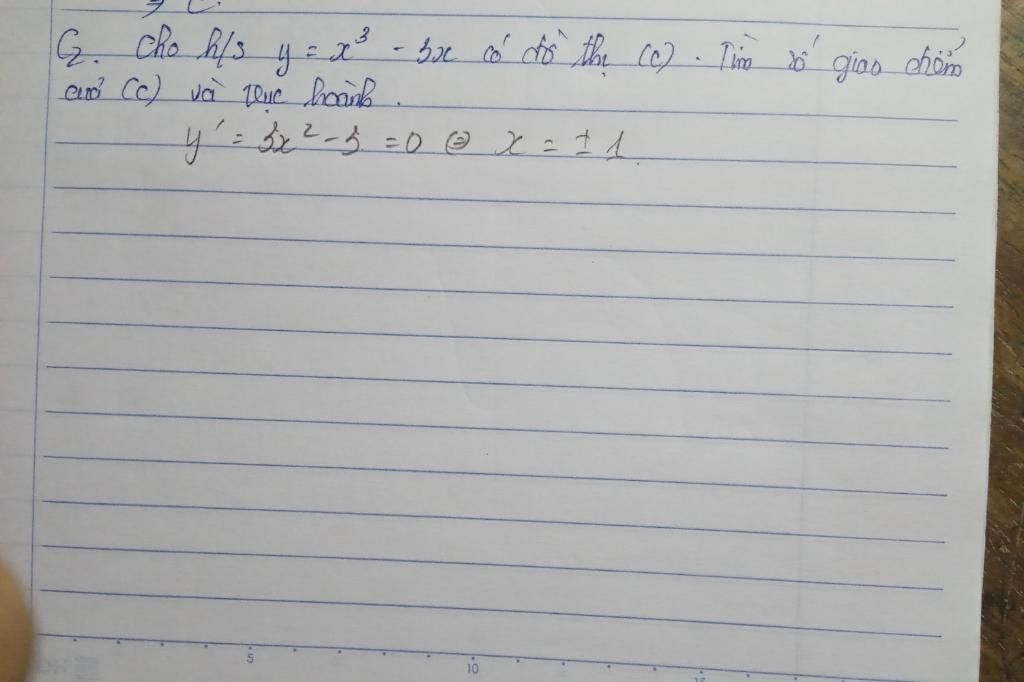 C2. Cho h/s y = x³ - 3x có đồ thị (C). Tìm số giao điểm
của (C) và trục hoành.
y' = 3x² - 3 = 0 ⇔ x = ± 1.
5 10 15